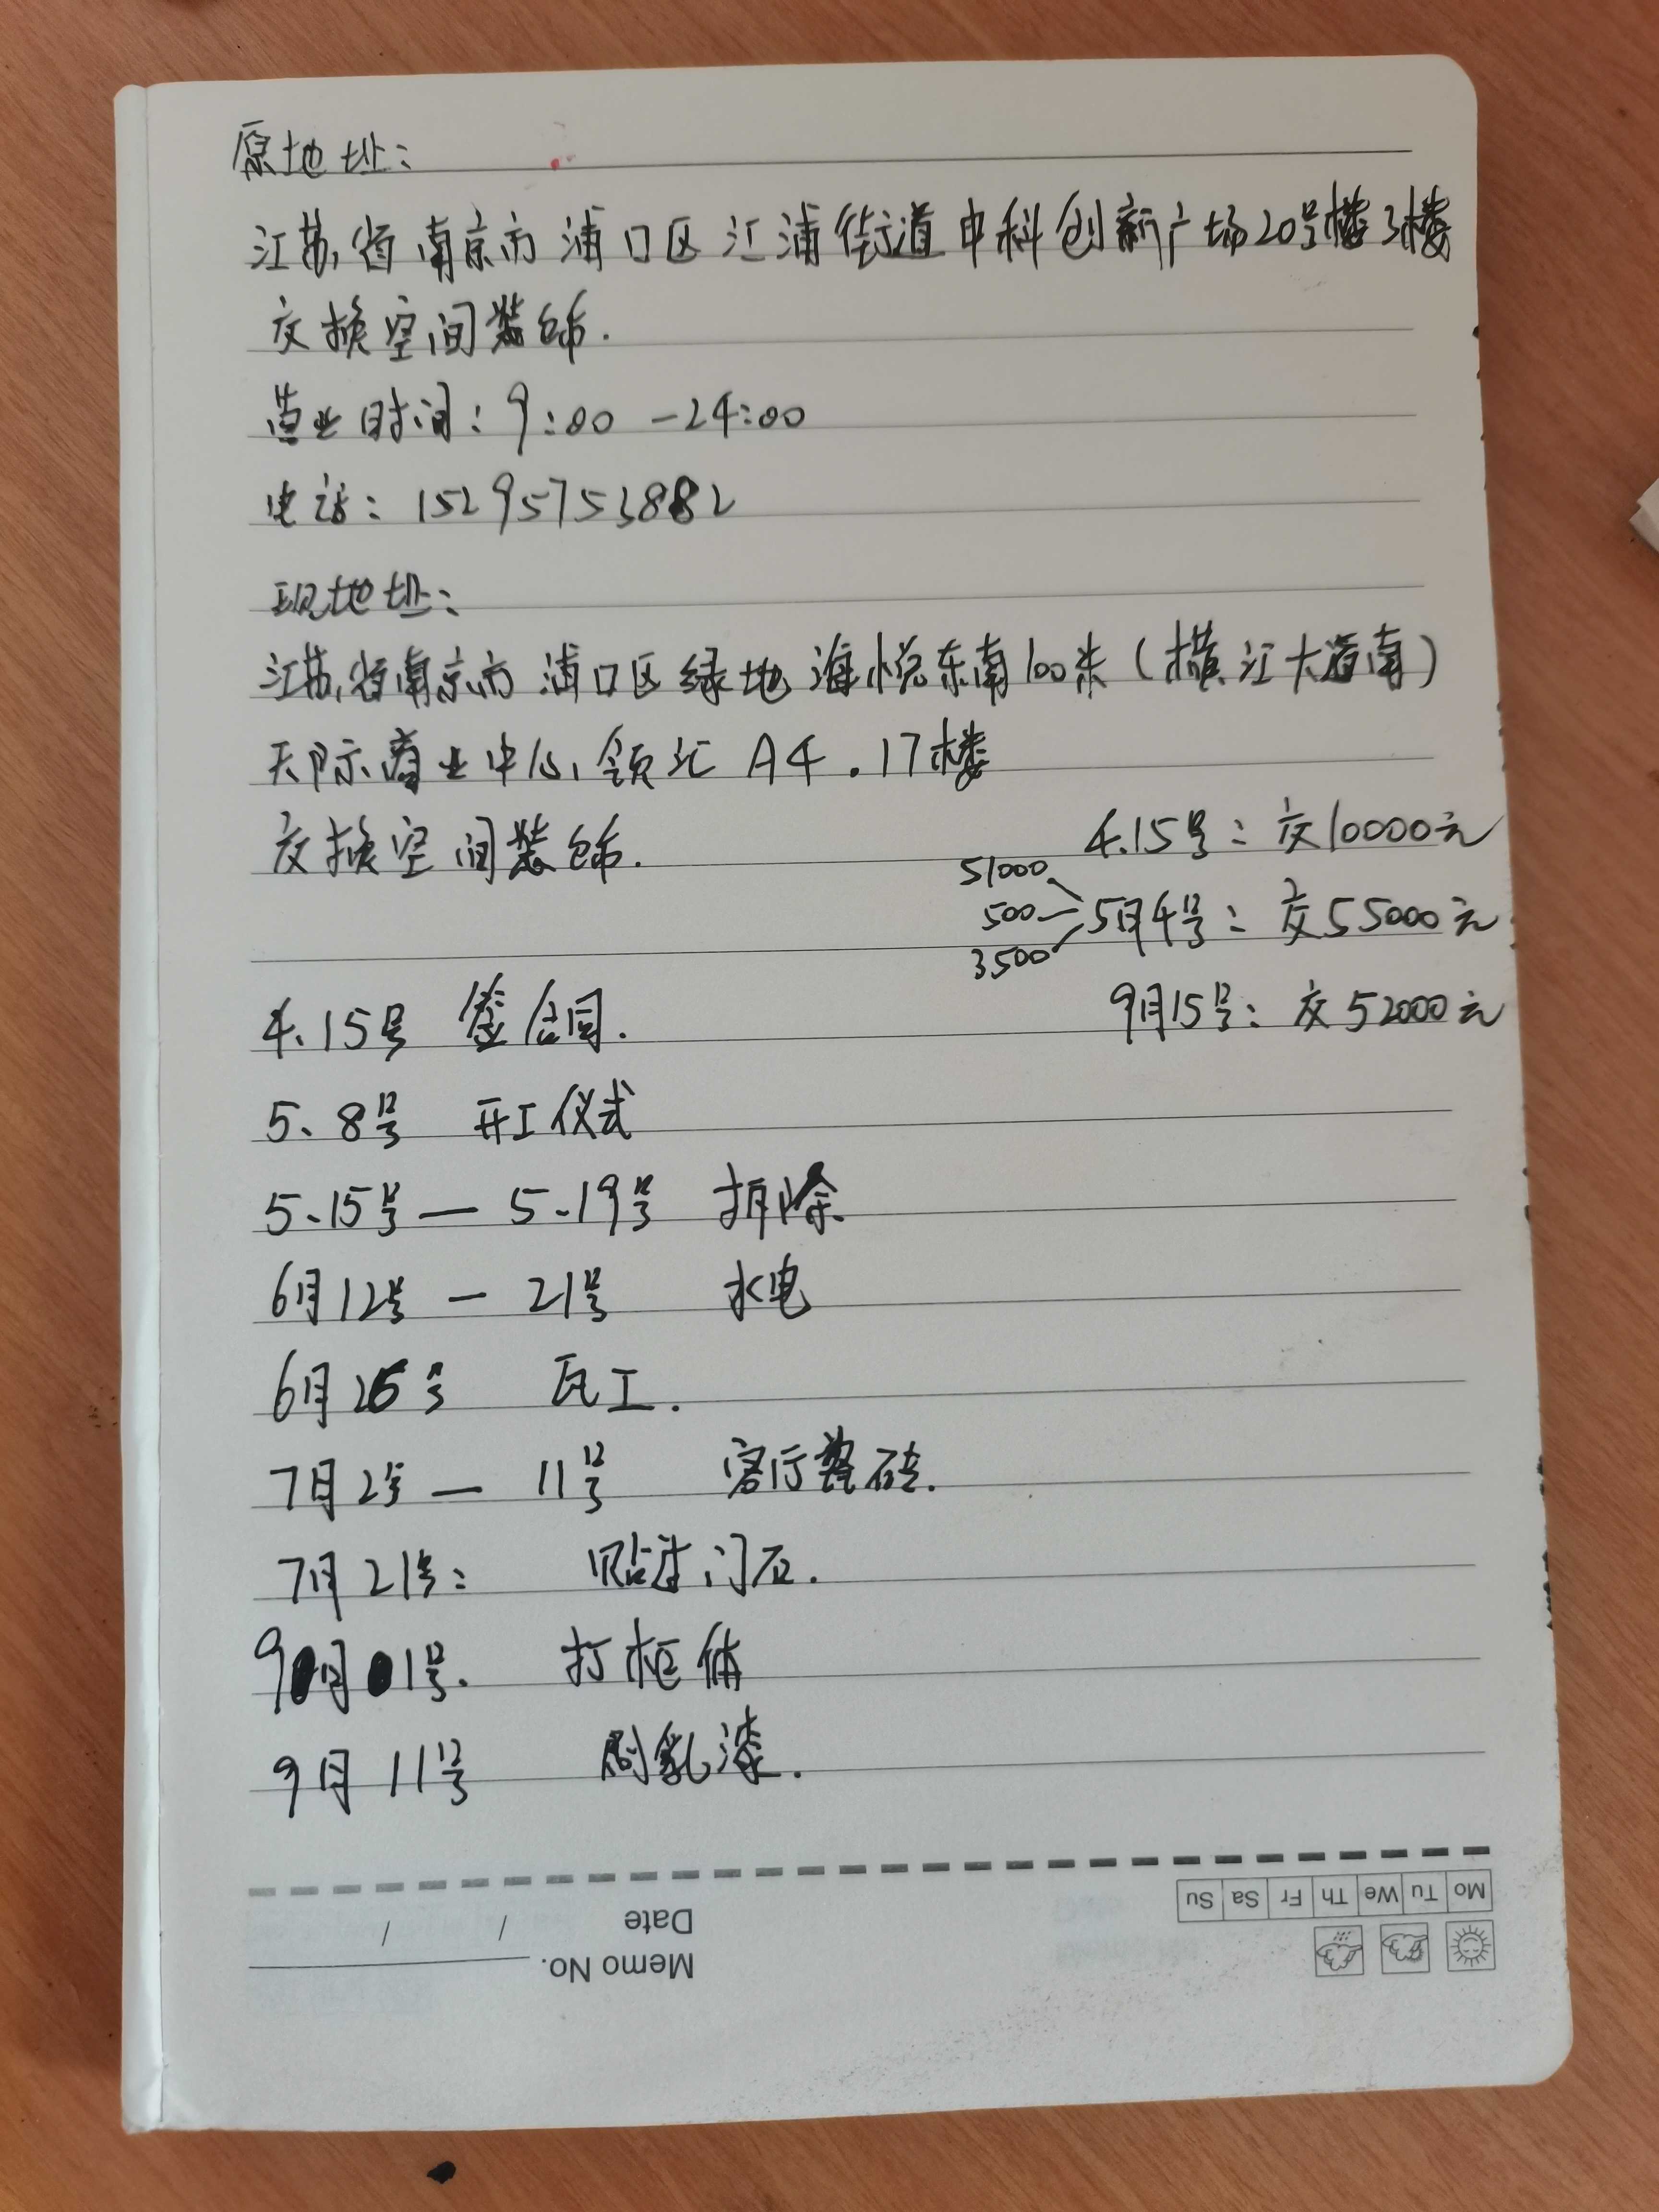 原地址：
江苏省南京市浦口区江浦街道中科创新广场20号楼3楼
交换空间装饰.
营业时间：9:00-24:00
电话：15295753882
现地址：
江苏省南京市浦口区绿地海悦东南100米（横江大道南）
天际商业中心领汇A4.17楼
交换空间装饰.
4.15号：交10000元
51000
500
3500
5月4号：交55000元
9月15号：交52000元
4.15号 签合同.
5、8号 开工仪式
5、15号—5、19号 拆除.
6月12号—21号 水电
6月26号 瓦工.
7月2号—11号 客厅瓷砖.
7月21号： 贴过门石.
9月1号. 打柜体
9月11号 刷乳漆.
Mo Tu We Th Fr Sa Su
Memo No.
Date / /